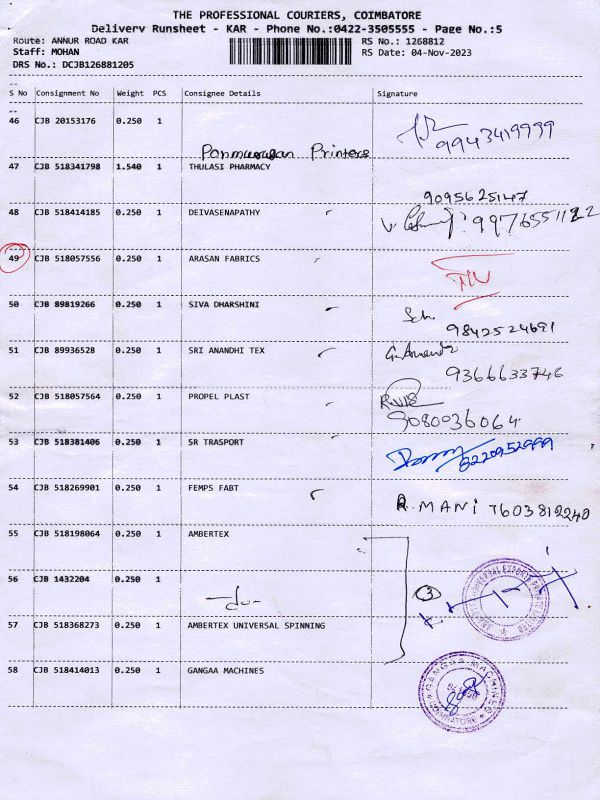 THE PROFESSIONAL COURIERS, COIMBATORE
Delivery Runsheet - KAR - Phone No.:0422-3505555 - Page No.:5
Route: ANNUR ROAD KAR
Staff: MOHAN
DRS No.: DCJB126881205
RS No.: 1268812
RS Date: 04-Nov-2023
S No Consignment No Weight PCS Consignee Details Signature
46 CJB 20153176 0.250 1
9943419999
Printers
47 CJB 518341798 1.540 1 THULASI PHARMACY
9095625147
48 CJB 518414185 0.250 1 DEIVASENAPATHY
9976551122
49 CJB 518057556 0.250 1 ARASAN FABRICS
50 CJB 89819266 0.250 1 SIVA DHARSHINI
9842524691
51 CJB 89936528 0.250 1 SRI ANANDHI TEX
9366633746
52 CJB 518057564 0.250 1 PROPEL PLAST
9080036064
53 CJB 518381406 0.250 1 SR TRASPORT
8220952999
54 CJB 518269901 0.250 1 FEMPS FABT
R. MANI 7603812240
55 CJB 518198064 0.250 1 AMBERTEX
56 CJB 1432204 0.250 1
-do-
3
57 CJB 518368273 0.250 1 AMBERTEX UNIVERSAL SPINNING
58 CJB 518414013 0.250 1 GANGAA MACHINES
GANGAA MACHINES
COIMBATORE